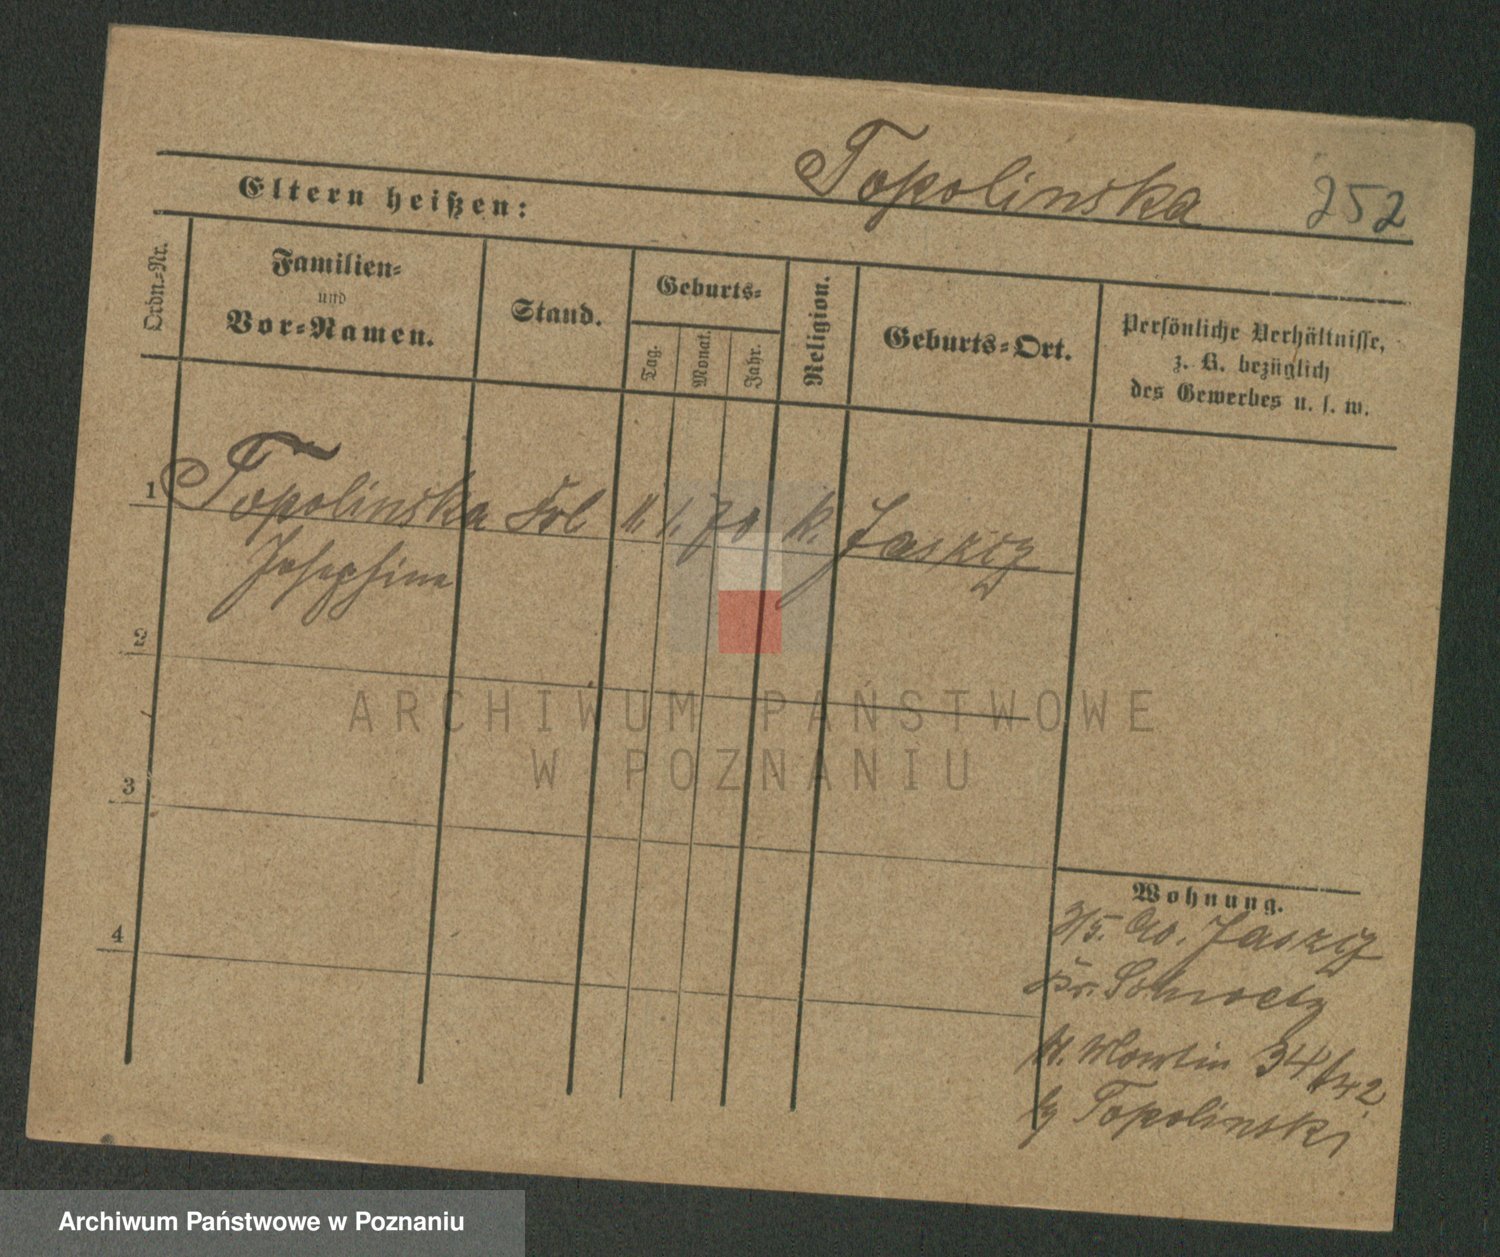 Topolinska 252
Eltern heißen:
Ordn.-Nr.
Familien-
und
Vor-Namen.
Stand.
Geburts-
Tag.
Monat.
Jahr.
Religion.
Geburts-Ort.
Persönliche Verhältnisse,
z. B. bezüglich
des Gewerbes u. s. w.
1 Topolinska Frl 11. 1. 70 k. Jaszcz
Josephine
2
3
4
Wohnung.
Jaszcz
Kr. Schwetz
St. Martin 34
Topolinski
ARCHIWUM PAŃSTWOWE
W POZNANIU
Archiwum Państwowe w Poznaniu